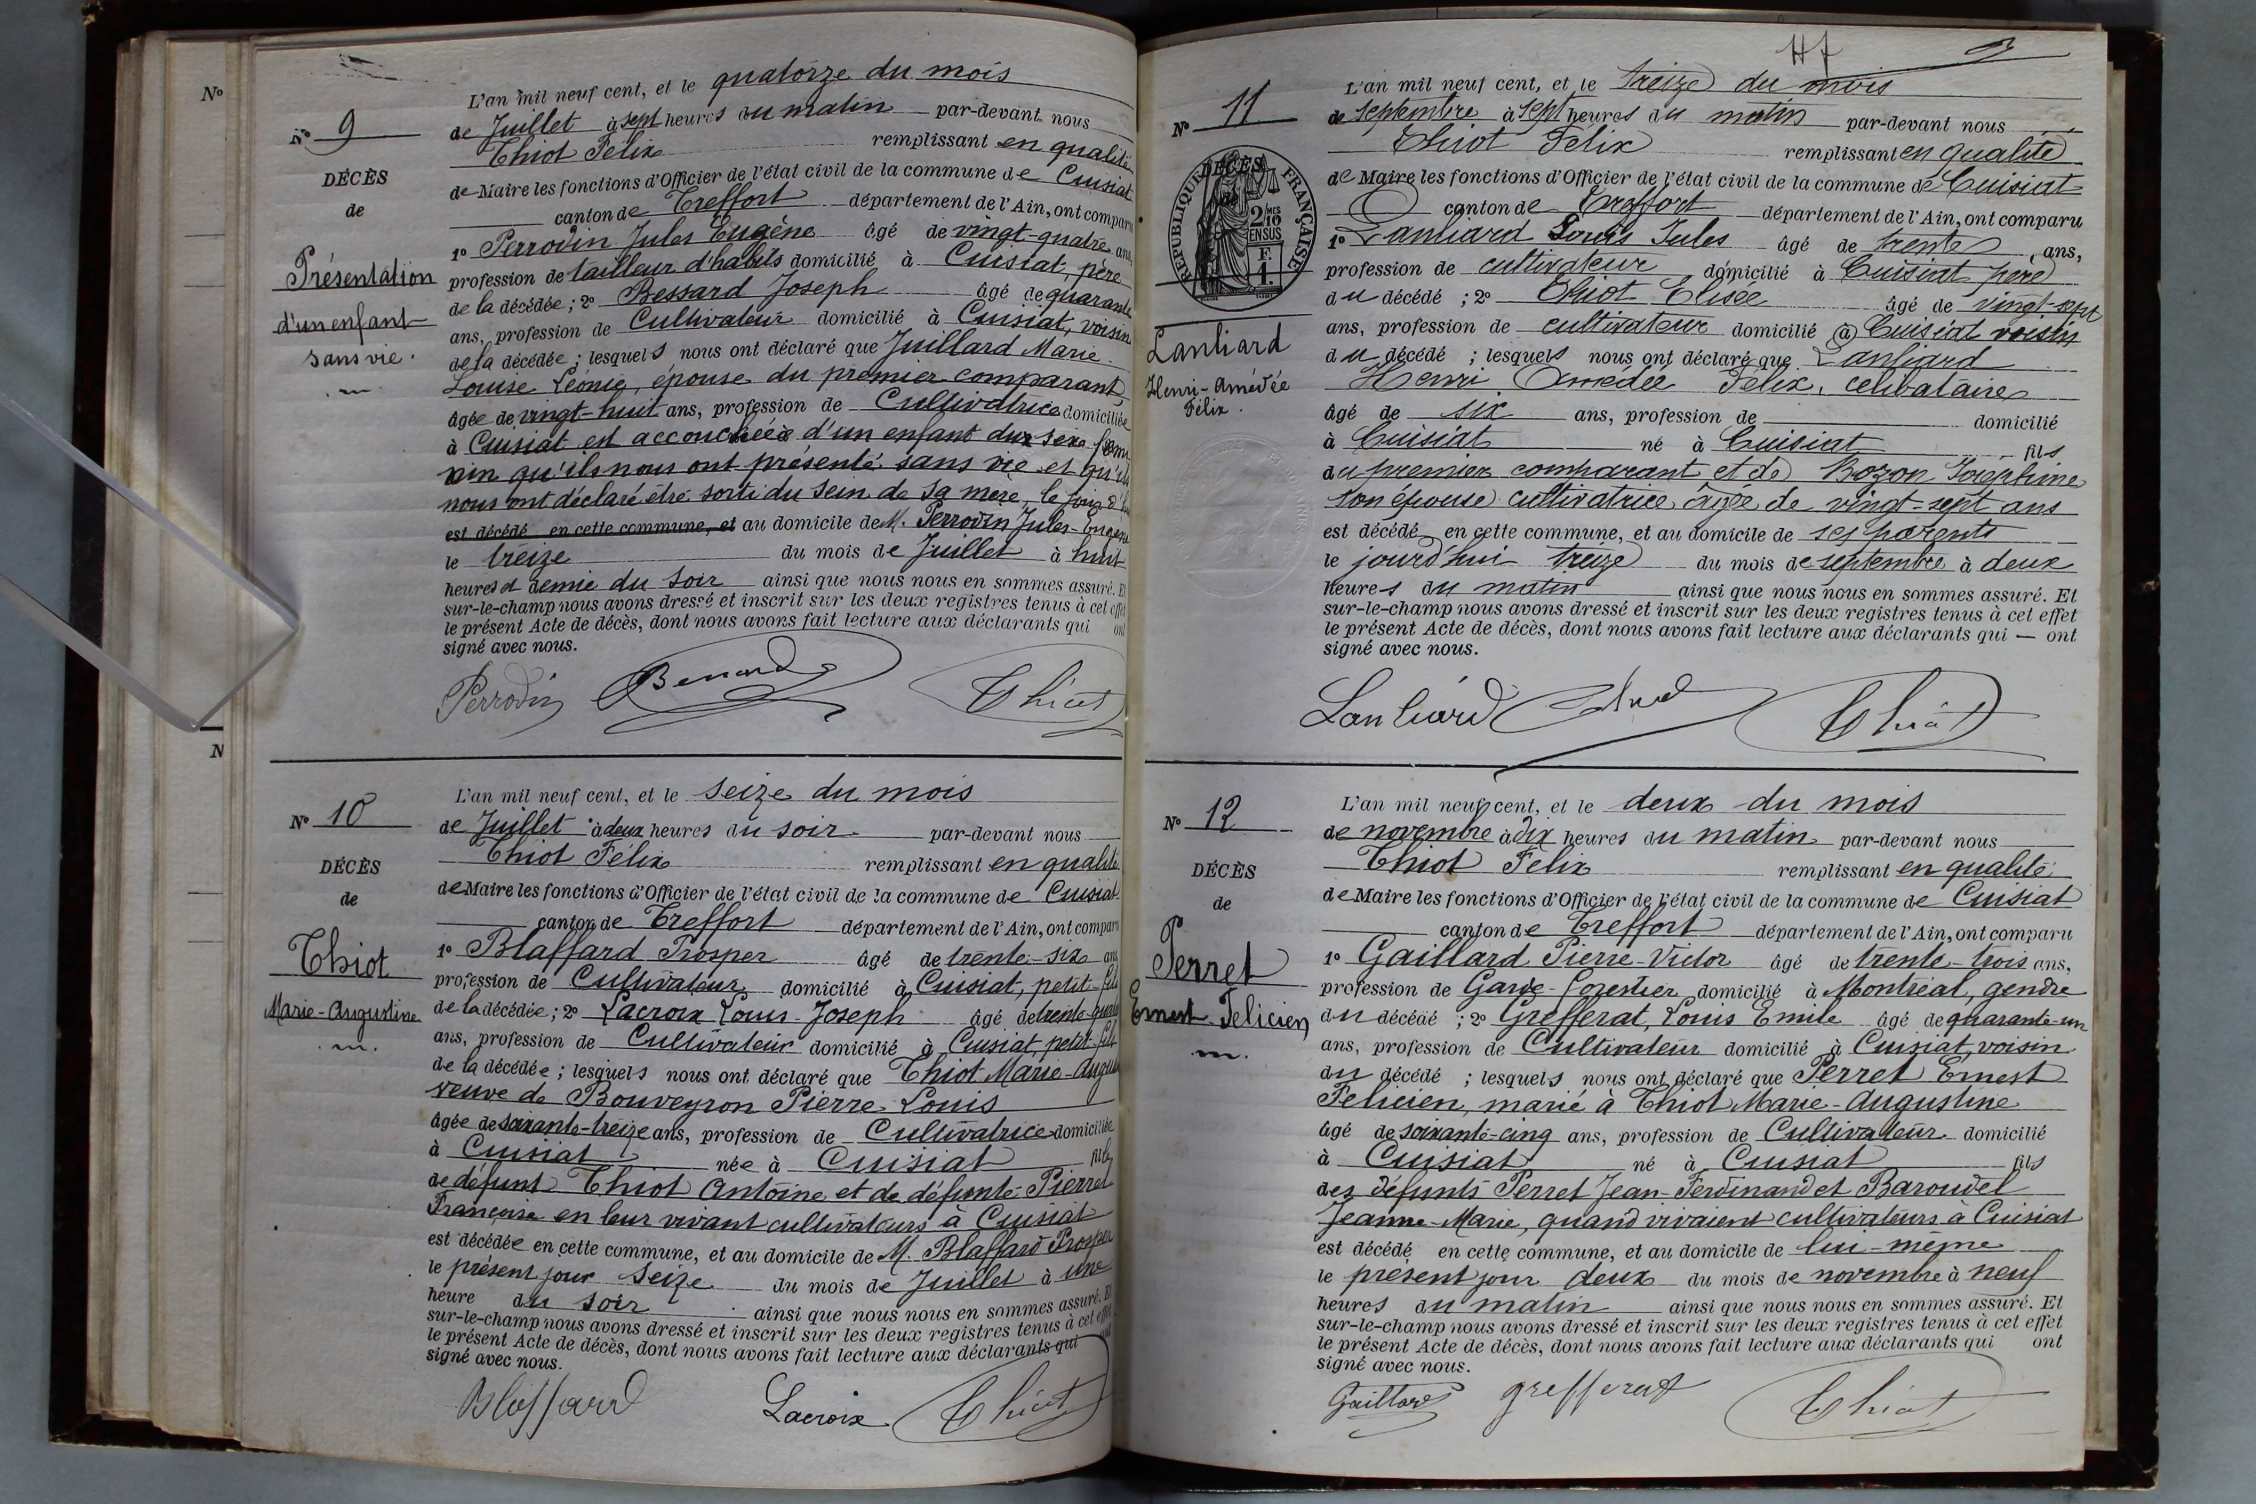 N° 9
DÉCÈS
de
Présentation
d'un enfant
sans vie.
L'an mil neuf cent, et le quatorze du mois
de Juillet à sept heures du matin par-devant nous
Thiot Félix remplissant en qualité
de Maire les fonctions d'Officier de l'état civil de la commune de Cuisiat
canton de Treffort département de l'Ain, ont comparu
1° Perrodin Jules Eugène âgé de vingt-quatre ans,
profession de tailleur d'habits domicilié à Cuisiat, père
de la décédée ; 2° Bessard Joseph âgé de quarante
ans, profession de Cultivateur domicilié à Cuisiat, voisin
de la décédée ; lesquels nous ont déclaré que Juillard Marie
Louise Léonie, épouse du premier comparant,
âgée de vingt-huit ans, profession de Cultivatrice domiciliée
à Cuisiat est accouchée d'un enfant du sexe fémi
nin qu'ils nous ont présenté sans vie et qu'ils
nous ont déclaré être sorti du sein de sa mère, le jour d'
est décédé en cette commune, et au domicile de M. Perrodin Jules-Eugène
le treize du mois de Juillet à huit
heures et demie du soir ainsi que nous nous en sommes assuré. Et
sur-le-champ nous avons dressé et inscrit sur les deux registres tenus à cet effet
le présent Acte de décès, dont nous avons fait lecture aux déclarants qui ont
signé avec nous.
Perrodin Bessard Thiot
N° 10
DÉCÈS
de
Thiot
Marie-Augustine
L'an mil neuf cent, et le seize du mois
de Juillet à deux heures du soir par-devant nous
Thiot Félix remplissant en qualité
de Maire les fonctions d'Officier de l'état civil de la commune de Cuisiat
canton de Treffort département de l'Ain, ont comparu
1° Blaffard Prosper âgé de trente-six ans
profession de Cultivateur domicilié à Cuisiat, petit-fils
de la décédée ; 2° Lacroix Louis-Joseph âgé de trente-quatre
ans, profession de Cultivateur domicilié à Cuisiat, petit-fils
de la décédée ; lesquels nous ont déclaré que Thiot Marie-Augus
veuve de Bouveyron Pierre Louis
âgée de soixante-treize ans, profession de Cultivatrice domiciliée
à Cuisiat née à Cuisiat fille
de défunt Thiot Antoine et de défunte Pierret
Françoise en leur vivant cultivateurs à Cuisiat
est décédée en cette commune, et au domicile de M. Blaffard Prosper
le présent jour seize du mois de Juillet à une
heure du soir ainsi que nous nous en sommes assuré. Et
sur-le-champ nous avons dressé et inscrit sur les deux registres tenus à cet effet
le présent Acte de décès, dont nous avons fait lecture aux déclarants qui ont
signé avec nous.
Blaffard Lacroix Thiot
N° 11
DÉCÈS
de
RÉPUBLIQUE FRANÇAISE
2/10 MES
EN SUS
F.
1.
Lanliard
Henri-Amédée
Félix.
L'an mil neuf cent, et le treize du mois
de septembre à sept heures du matin par-devant nous
Thiot Félix remplissant en qualité
de Maire les fonctions d'Officier de l'état civil de la commune de Cuisiat
canton de Treffort département de l'Ain, ont comparu
1° Lanliard Louis Jules âgé de trente ans,
profession de cultivateur domicilié à Cuisiat père
du décédé ; 2° Thiot Elisée âgé de vingt-sept
ans, profession de cultivateur domicilié à Cuisiat voisin
du décédé ; lesquels nous ont déclaré que Lanliard
Henri Amédée Félix, célibataire
âgé de six ans, profession de domicilié
à Cuisiat né à Cuisiat fils
du premier comparant et de Bozon Joséphine
son épouse cultivatrice âgée de vingt-sept ans
est décédé en cette commune, et au domicile de ses parents
le jourd'hui treize du mois de septembre à deux
heures du matin ainsi que nous nous en sommes assuré. Et
sur-le-champ nous avons dressé et inscrit sur les deux registres tenus à cet effet
le présent Acte de décès, dont nous avons fait lecture aux déclarants qui — ont
signé avec nous.
Lanliard Thiot
N° 12
DÉCÈS
de
Perret
Ernest Felicien
L'an mil neuf cent, et le deux du mois
de novembre à dix heures du matin par-devant nous
Thiot Félix remplissant en qualité
de Maire les fonctions d'Officier de l'état civil de la commune de Cuisiat
canton de Treffort département de l'Ain, ont comparu
1° Gaillard Pierre-Victor âgé de trente-trois ans,
profession de Garde-forestier domicilié à Montréal, gendre
du décédé ; 2° Grefferat, Louis Emile âgé de quarante-un
ans, profession de Cultivateur domicilié à Cuisiat, voisin
du décédé ; lesquels nous ont déclaré que Perret Ernest
Felicien, marié à Thiot Marie-Augustine
âgé de soixante-cinq ans, profession de Cultivateur domicilié
à Cuisiat né à Cuisiat fils
des défunts Perret Jean-Ferdinand et Baroudel
Jeanne-Marie, quand vivaient cultivateurs à Cuisiat
est décédé en cette commune, et au domicile de lui-même
le présent jour deux du mois de novembre à neuf
heures du matin ainsi que nous nous en sommes assuré. Et
sur-le-champ nous avons dressé et inscrit sur les deux registres tenus à cet effet
le présent Acte de décès, dont nous avons fait lecture aux déclarants qui ont
signé avec nous.
Gaillard grefferat Thiot